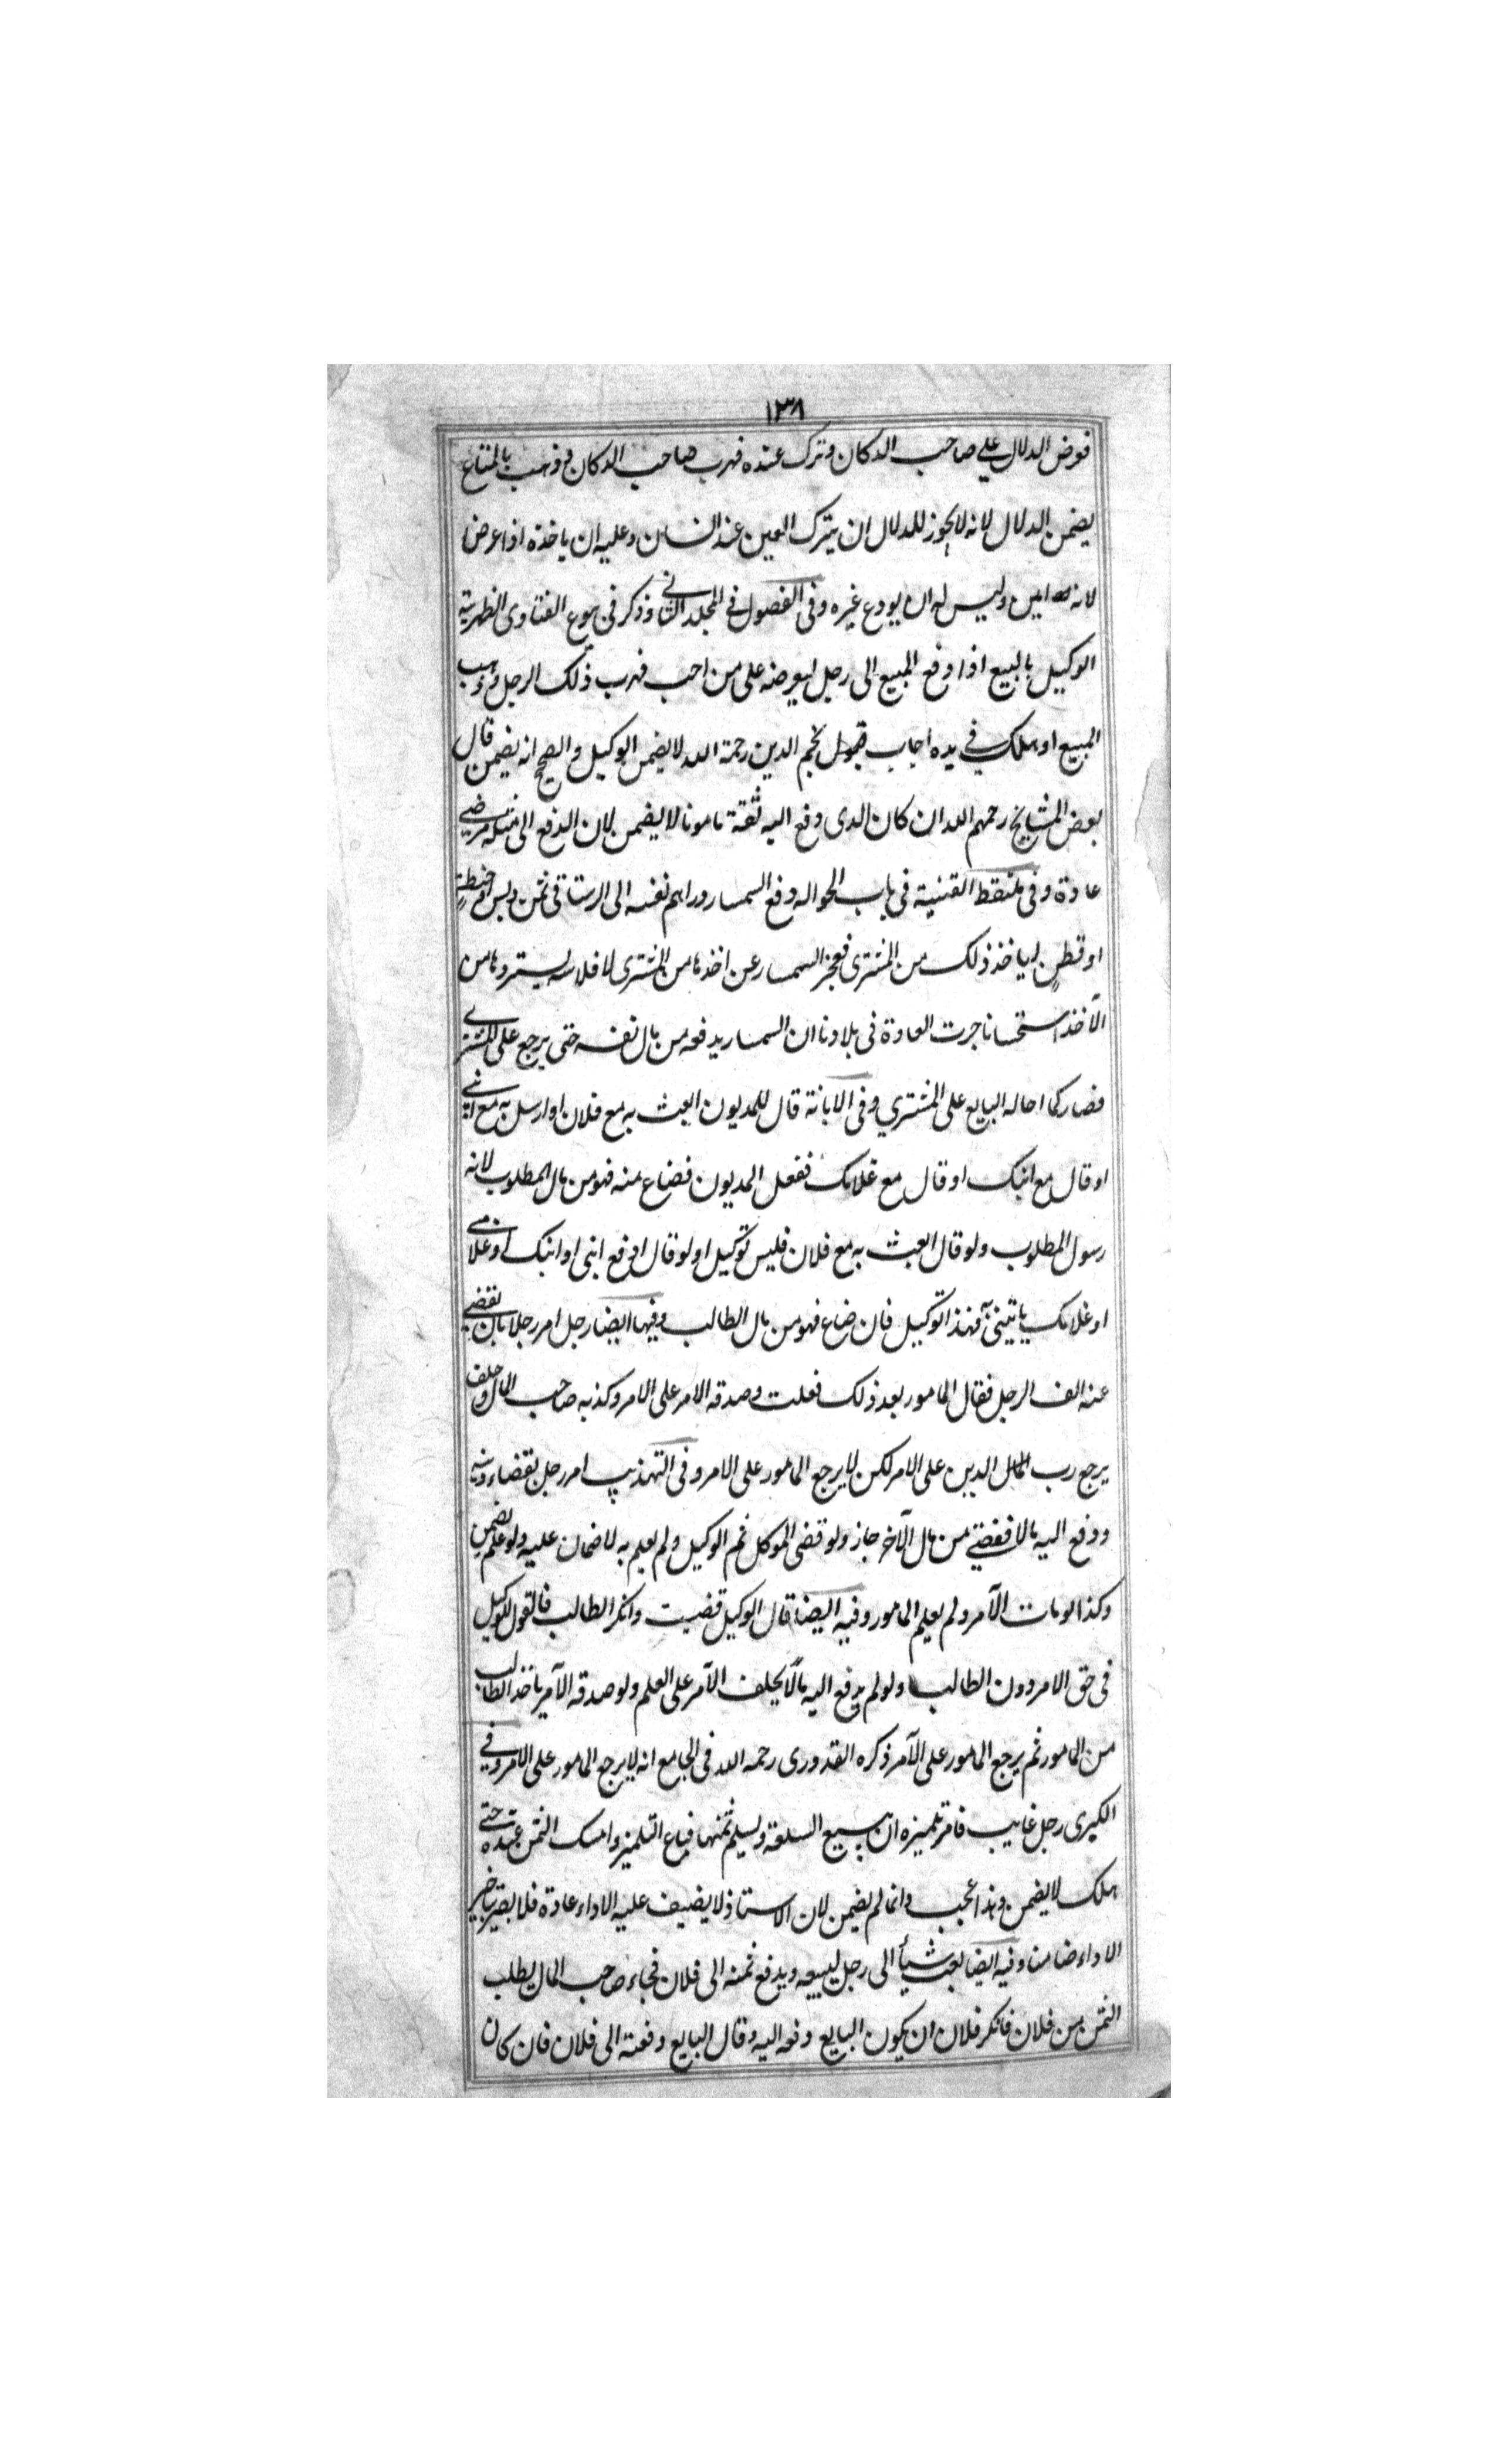 ١٣٨
فوض الدلال على صاحب الدكان وترك عنده فهرب صاحب الدكان وذهب بالمتاع
يضمن الدلال لانه لا يجوز للدلال ان يترك العين عند انسان وعليه ان ياخذه اذا عرض
لانه امين وليس له ان يودع غيره وفى الفصول فى المجلد الثانى وذكر فى بيوع الفتاوى الظهرية
الوكيل بالبيع اذا دفع المبيع الى رجل ليعرضه على من احب فهرب ذلك الرجل وذهب
المبيع او هلك فى يده اجاب نجم الدين رحمة الله لا يضمن الوكيل والصحيح انه يضمن قال
بعض المشايخ رحمهم الله ان كان الذى دفع اليه ثقة مامونا لا يضمن لان الدفع الى مثله مرضى
عادة وفى ملتقط القنية فى باب الحواله دفع السمسار دراهم نفسه الى الرستاقى ثمن دبس او حنطة
او قطن لياخذ ذلك من المشترى فعجز السمسار عن اخذها من المشترى لافلاسه يستردها من
الآخذ استحسانا جرت العادة فى بلادنا ان السمسار يدفعه من مال نفسه حتى يرجع على المشترى
فصار كما احاله البايع على المشتري وفى الابانة قال للمديون ابعث به مع فلان او ارسل به مع ابنى
او قال مع ابنك او قال مع غلامك ففعل المديون فضاع منه فهو من مال المطلوب لانه
رسول المطلوب ولو قال ابعث به مع فلان فليس توكيل اولو قال ادفع ابنى او ابنك او غلامى
او غلامك ياتينى به فهذا توكيل فان ضاع فهو من مال الطالب وفيها ايضا رجل امر رجلا بان يقضى
عنه الف الرجل فقال المامور بعد ذلك فعلت وصدقه الامر على الامر وكذبه صاحب المال وحلف
يرجع رب المال الدين على الامر لكن لا يرجع المامور على الامر وفى التهذيب امر رجل بقضاء دينه
ودفع اليه مالا فقضى من مال الآخر جاز ولو قضى الموكل ثم الوكيل ولم يعلم به لا ضمان عليه ولو علم يضمن
وكذا لو مات الآمر ولم يعلم المامور وفيه ايضا قال الوكيل قضيت وانكر الطالب فالقول للوكيل
فى حق الامر دون الطالب ولو لم يدفع اليه مالا يحلف الآمر على العلم ولو صدقه الآمر ياخذ الطالب
من المامور ثم يرجع المامور على الآمر ذكره القدورى رحمه الله فى الجامع انه لا يرجع المامور على الامر وفى
الكبرى رجل غايب فامر تلميذه ان يبيع السلعة ويسلم ثمنها فباع التلميذ وامسك الثمن عنده حتى
هلك لا يضمن وهذا عجب وانما لم يضمن لان الاستاذ لا يضيف عليه الاداء عادة فلا يصير بتاخير
الاداء ضامنا وفيه ايضا بعث شيأ الى رجل ليبيعه ويدفع ثمنه الى فلان فجاء صاحب المال يطلب
الثمن من فلان فانكر فلان ان يكون البايع دفعه اليه وقال البايع دفعته الى فلان فان كان